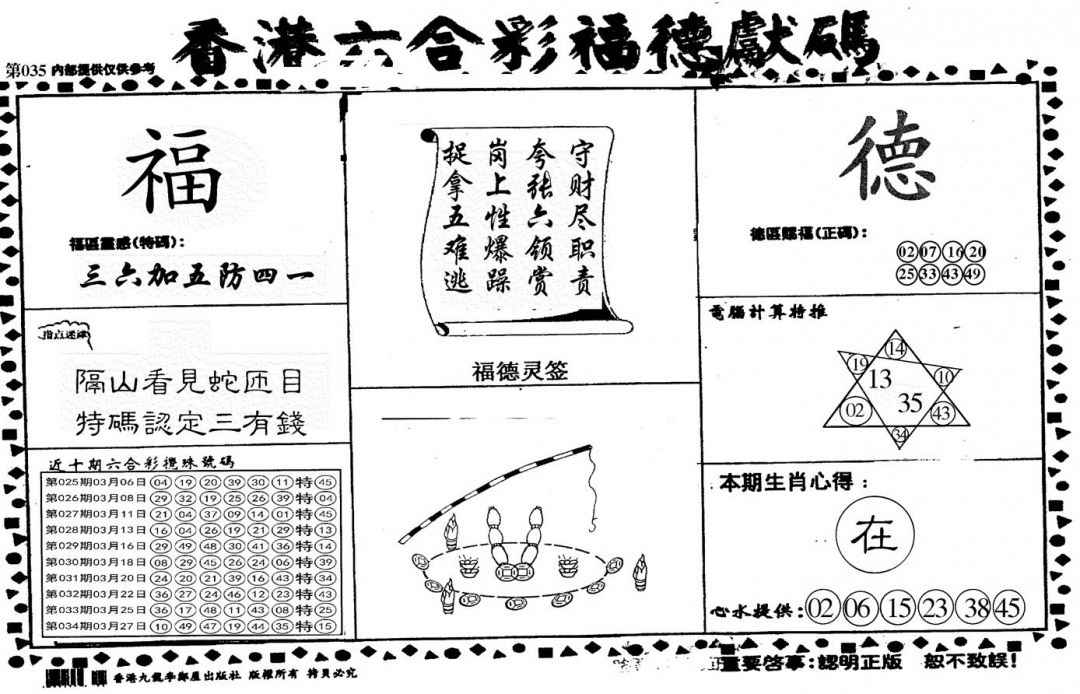 香港六合彩福德獻碼
第035 内部提供仅供参考
福
福區靈感(特碼):
三六加五防四一
指点迷津
隔山看見蛇匝目
特碼認定三有錢
近十期六合彩攪珠號碼
第025期03月06日 04 19 20 39 30 11 特 45
第026期03月08日 29 32 19 25 26 39 特 04
第027期03月11日 21 04 37 09 14 01 特 45
第028期03月13日 16 04 26 19 21 29 特 13
第029期03月16日 29 49 48 30 41 36 特 14
第030期03月18日 08 29 45 26 24 06 特 39
第031期03月20日 24 20 21 39 16 43 特 34
第032期03月22日 36 27 24 46 12 23 特 43
第033期03月25日 36 17 48 11 43 08 特 25
第034期03月27日 10 49 47 19 44 35 特 15
守财尽职责
夸张六领赏
岗上性爆躁
捉拿五难逃
福德灵签
德
德區賜福(正碼):
02 07 16 20
25 33 43 49
電腦計算特推
14
19
10
13
35
02
43
34
本期生肖心得:
在
心水提供:02 06 15 23 38 45
香港九龍李鄭屋出版社 版權所有 拷貝必究
重要啓事:認明正版 恕不致誤!